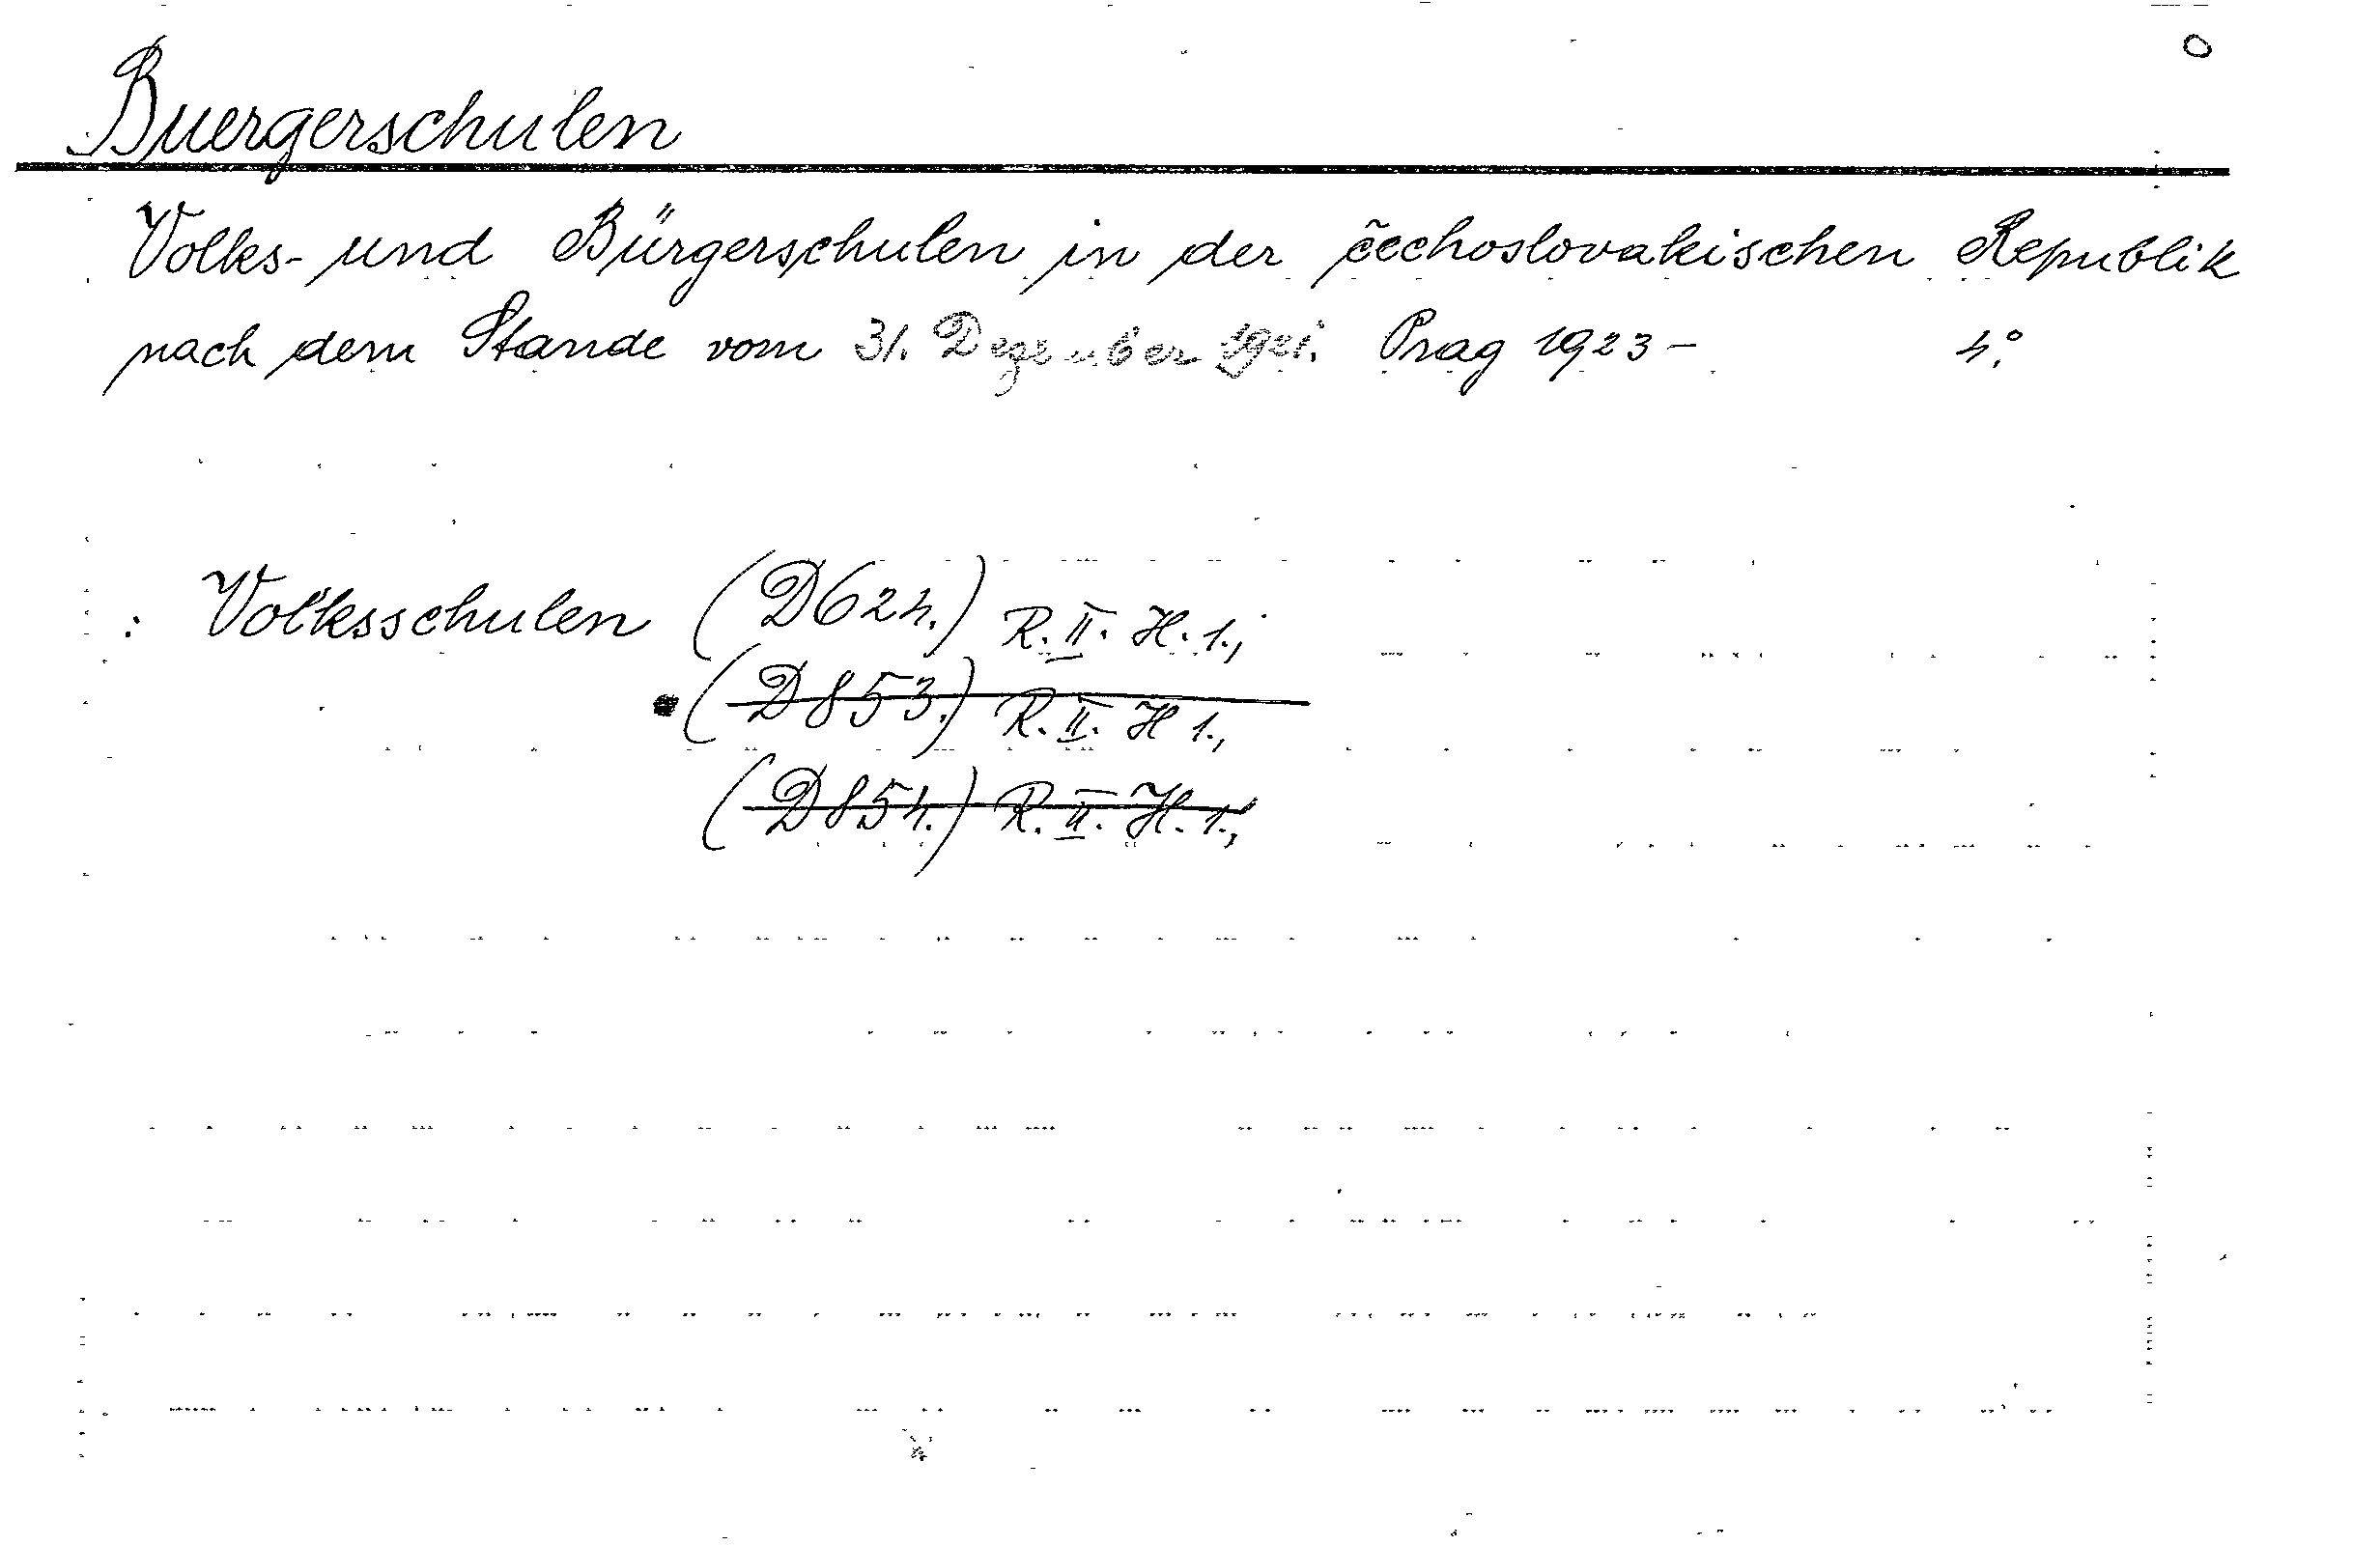 O
Buergerschulen
Volks- und Bürgerschulen in der čechoslovakischen Republik
nach dem Stande vom 31. Dezember 1921. Prag 1923 - 4.°
: Volksschulen (D624.) R. II. H. 1.,
(D853.) R. II. H 1.,
(D854.) R. II. H. 1.,